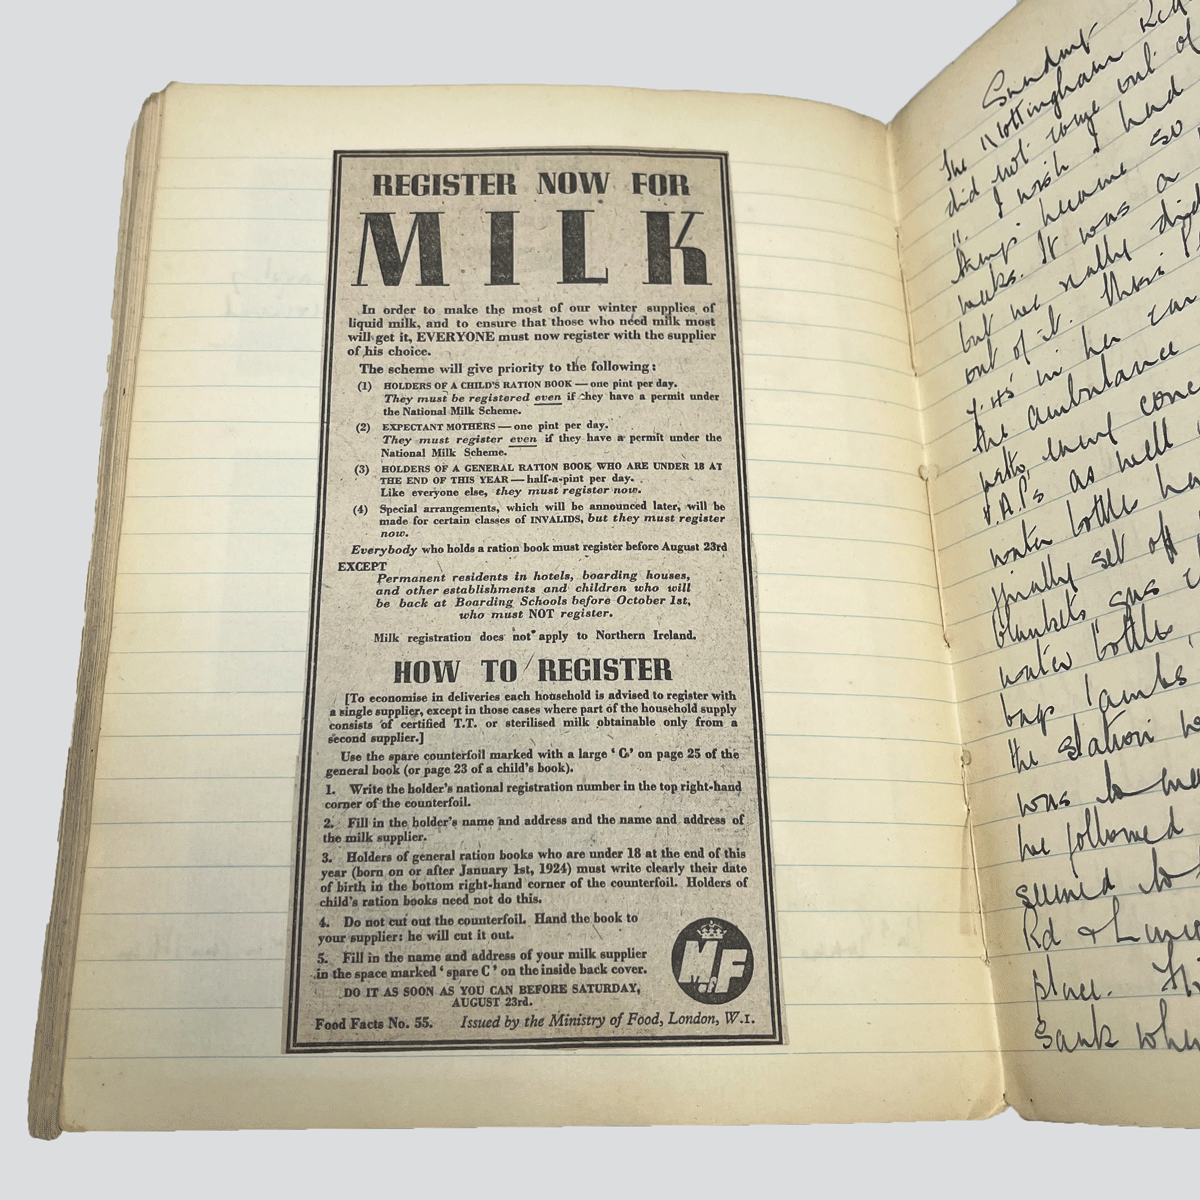 REGISTER NOW FOR
MILK
In order to make the most of our winter supplies of
liquid milk, and to ensure that those who need milk most
will get it, EVERYONE must now register with the supplier
of his choice.
The scheme will give priority to the following :
(1) HOLDERS OF A CHILD'S RATION BOOK — one pint per day.
They must be registered even if they have a permit under
the National Milk Scheme.
(2) EXPECTANT MOTHERS — one pint per day.
They must register even if they have a permit under the
National Milk Scheme.
(3) HOLDERS OF A GENERAL RATION BOOK WHO ARE UNDER 18 AT
THE END OF THIS YEAR — half-a-pint per day.
Like everyone else, they must register now.
(4) Special arrangements, which will be announced later, will be
made for certain classes of INVALIDS, but they must register
now.
Everybody who holds a ration book must register before August 23rd
EXCEPT
Permanent residents in hotels, boarding houses,
and other establishments and children who will
be back at Boarding Schools before October 1st,
who must NOT register.
Milk registration does not apply to Northern Ireland.
HOW TO REGISTER
[To economise in deliveries each household is advised to register with
a single supplier, except in those cases where part of the household supply
consists of certified T.T. or sterilised milk obtainable only from a
second supplier.]
Use the spare counterfoil marked with a large ‘ C ’ on page 25 of the
general book (or page 23 of a child's book).
1. Write the holder's national registration number in the top right-hand
corner of the counterfoil.
2. Fill in the holder's name and address and the name and address of
the milk supplier.
3. Holders of general ration books who are under 18 at the end of this
year (born on or after January 1st, 1924) must write clearly their date
of birth in the bottom right-hand corner of the counterfoil. Holders of
child's ration books need not do this.
4. Do not cut out the counterfoil. Hand the book to
your supplier: he will cut it out.
5. Fill in the name and address of your milk supplier
in the space marked ‘ spare C ’ on the inside back cover.
DO IT AS SOON AS YOU CAN BEFORE SATURDAY,
AUGUST 23rd.
MF
Food Facts No. 55. Issued by the Ministry of Food, London, W.1.
Sunday
The Nottingham
did not come out of
I wish I had
became so
weeks. It was a
but we really
out of it.
in her
the ambulance
with every
V.A.D's as well
water bottle
finally set off
blankets gas
water bottle
bags
the station
was to
he followed
seemed to
Rd &
place.
Sank when